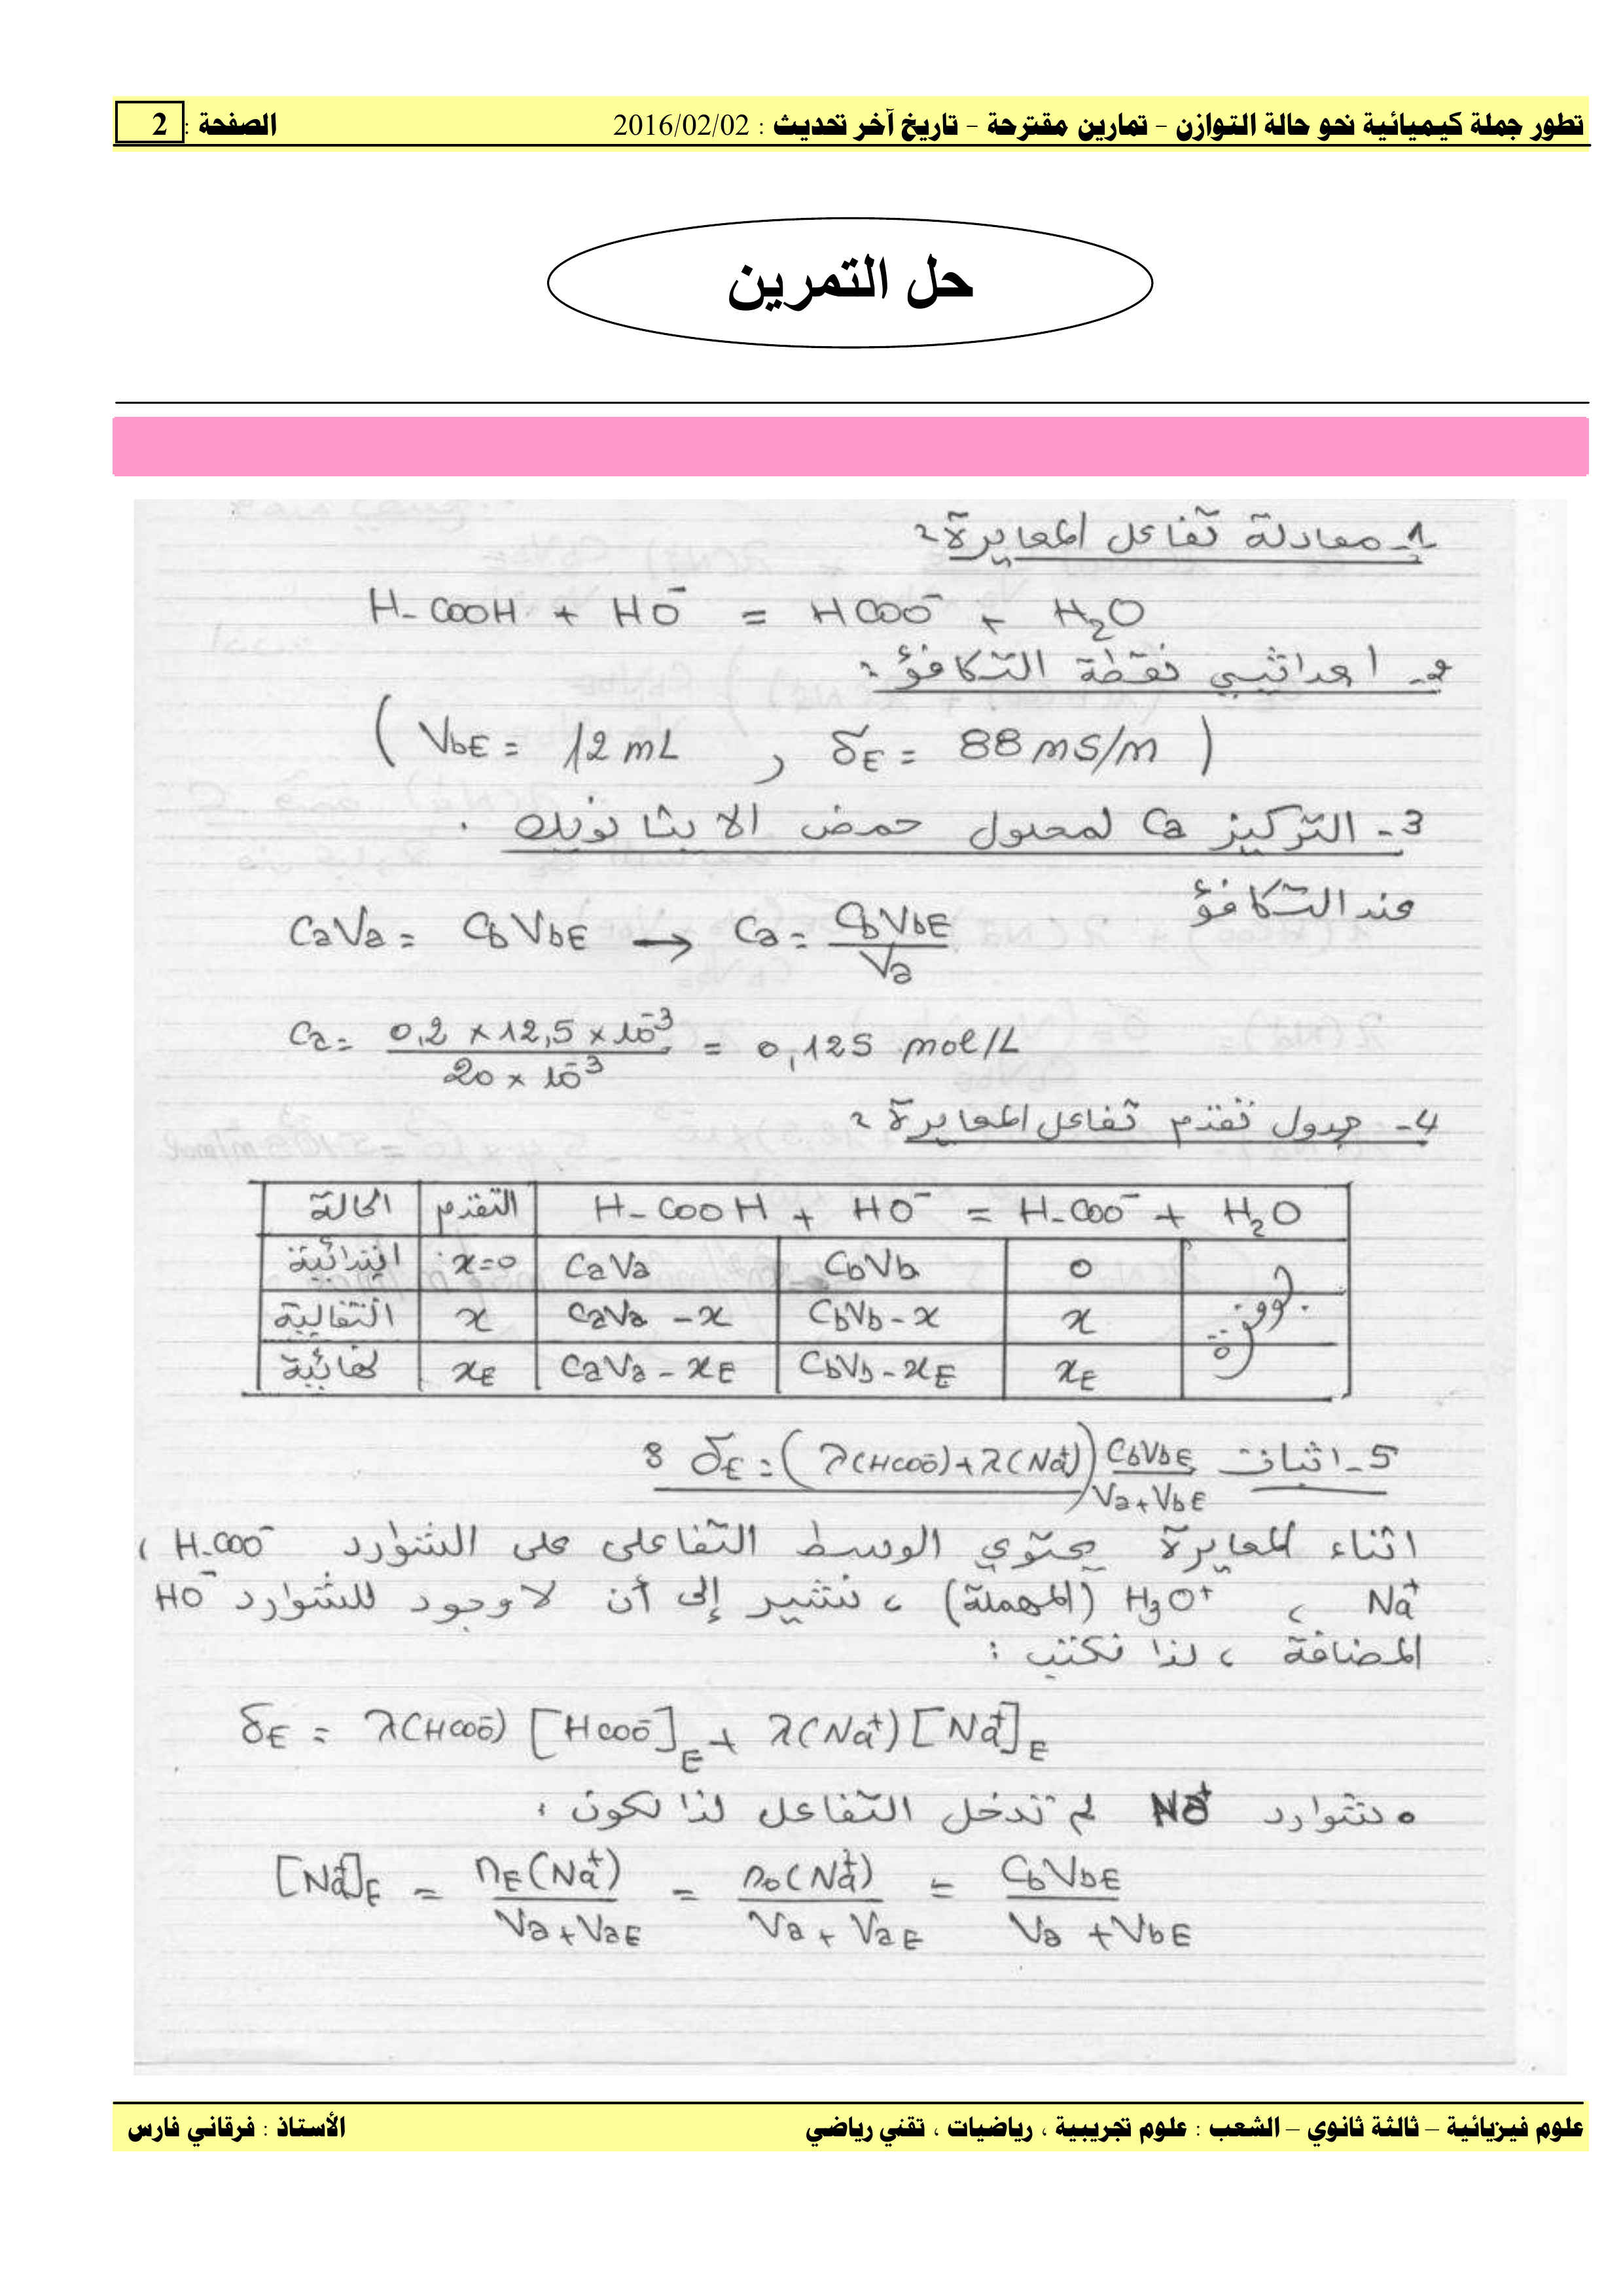 تطور جملة كيميائية نحو حالة التوازن - تمارين مقترحة - تاريخ آخر تحديث : 2016/02/02 الصفحة : 2
حل التمرين
1- معادلة تفاعل المعايرة :
H-COOH + HO⁻ = HCOO⁻ + H₂O
2- احداثيي نقطة التكافؤ :
( VbE = 12 mL , δE = 88 mS/m )
3- التركيز Ca لمحلول حمض الايثانويك .
عند التكافؤ
CaVa = CbVbE → Ca = CbVbE / Va
Ca = 0,2 × 12,5 × 10⁻³ / 20 × 10⁻³ = 0,125 mol/L
4- جدول تقدم تفاعل المعايرة :
الحالة التقدم H-COOH + HO⁻ = H-COO⁻ + H₂O
ابتدائية x=0 CaVa CbVb 0 بوفرة
انتقالية x CaVa - x CbVb - x x
نهائية xE CaVa - xE CbVb - xE xE
5- اثبات δE = (λ(HCOO⁻) + λ(Na⁺)) CbVbE / Va + VbE :
اثناء المعايرة يحتوي الوسط التفاعلي على الشوارد H-COO⁻ ،
Na⁺ ، H₃O⁺ (المهملة) ، نشير إلى أن لا وجود للشوارد HO⁻
المضافة ، لذا نكتب :
δE = λ(HCOO⁻) [HCOO⁻]E + λ(Na⁺) [Na⁺]E
• شوارد Na⁺ لم تدخل التفاعل لذا يكون :
[Na⁺]E = nE(Na⁺) / Va + VaE = n₀(Na⁺) / Va + VaE = CbVbE / Va + VbE
علوم فيزيائية – ثالثة ثانوي – الشعب : علوم تجريبية ، رياضيات ، تقني رياضي الأستاذ : فرقاني فارس